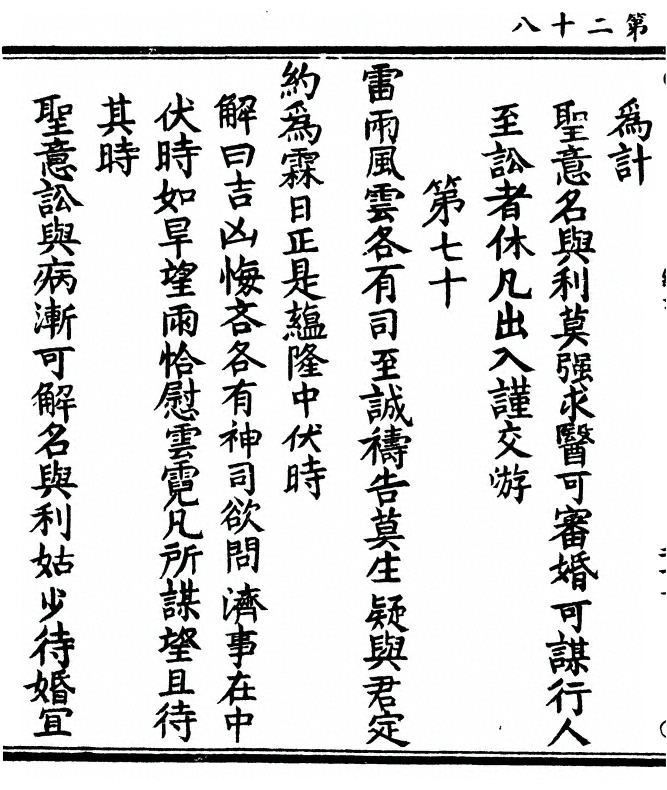 第二十八
爲計
聖意名與利莫强求醫可審婚可謀行人
至訟者休凡出入謹交游
第七十
雷雨風雲各有司至誠禱告莫生疑與君定
約爲霖日正是蘊隆中伏時
解曰吉凶悔吝各有神司欲問濟事在中
伏時如旱望雨恰慰雲霓凡所謀望且待
其時
聖意訟與病漸可解名與利姑少待婚宜